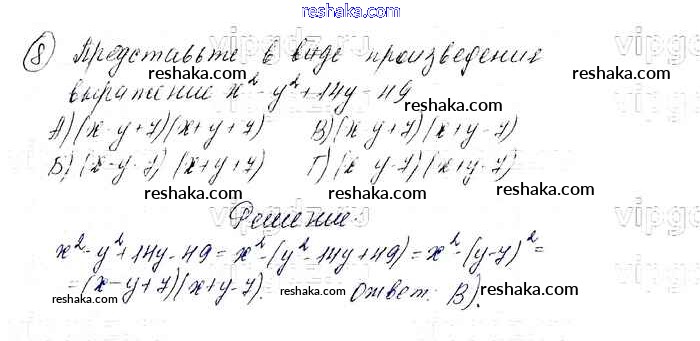 www.reshaka.com
vipgdz.ru
8 Представьте в виде произведения
reshaka.com reshaka.com
выражение x² - y² + 14y - 49
reshaka.com
А) (x - y + 7)(x + y + 7) В) (x y + 7)(x + y - 7)
Б) (x - y - 7) (x + y + 7) Г) (x y - 7)(x + y - 7)
reshaka.com reshaka.com
Решение:
x² - y² + 14y - 49 = x² - (y² - 14y + 49) = x² - (y - 7)² =
= (x - y + 7)(x + y - 7). Ответ: В).
reshaka.com reshaka.com reshaka.com
reshaka.com